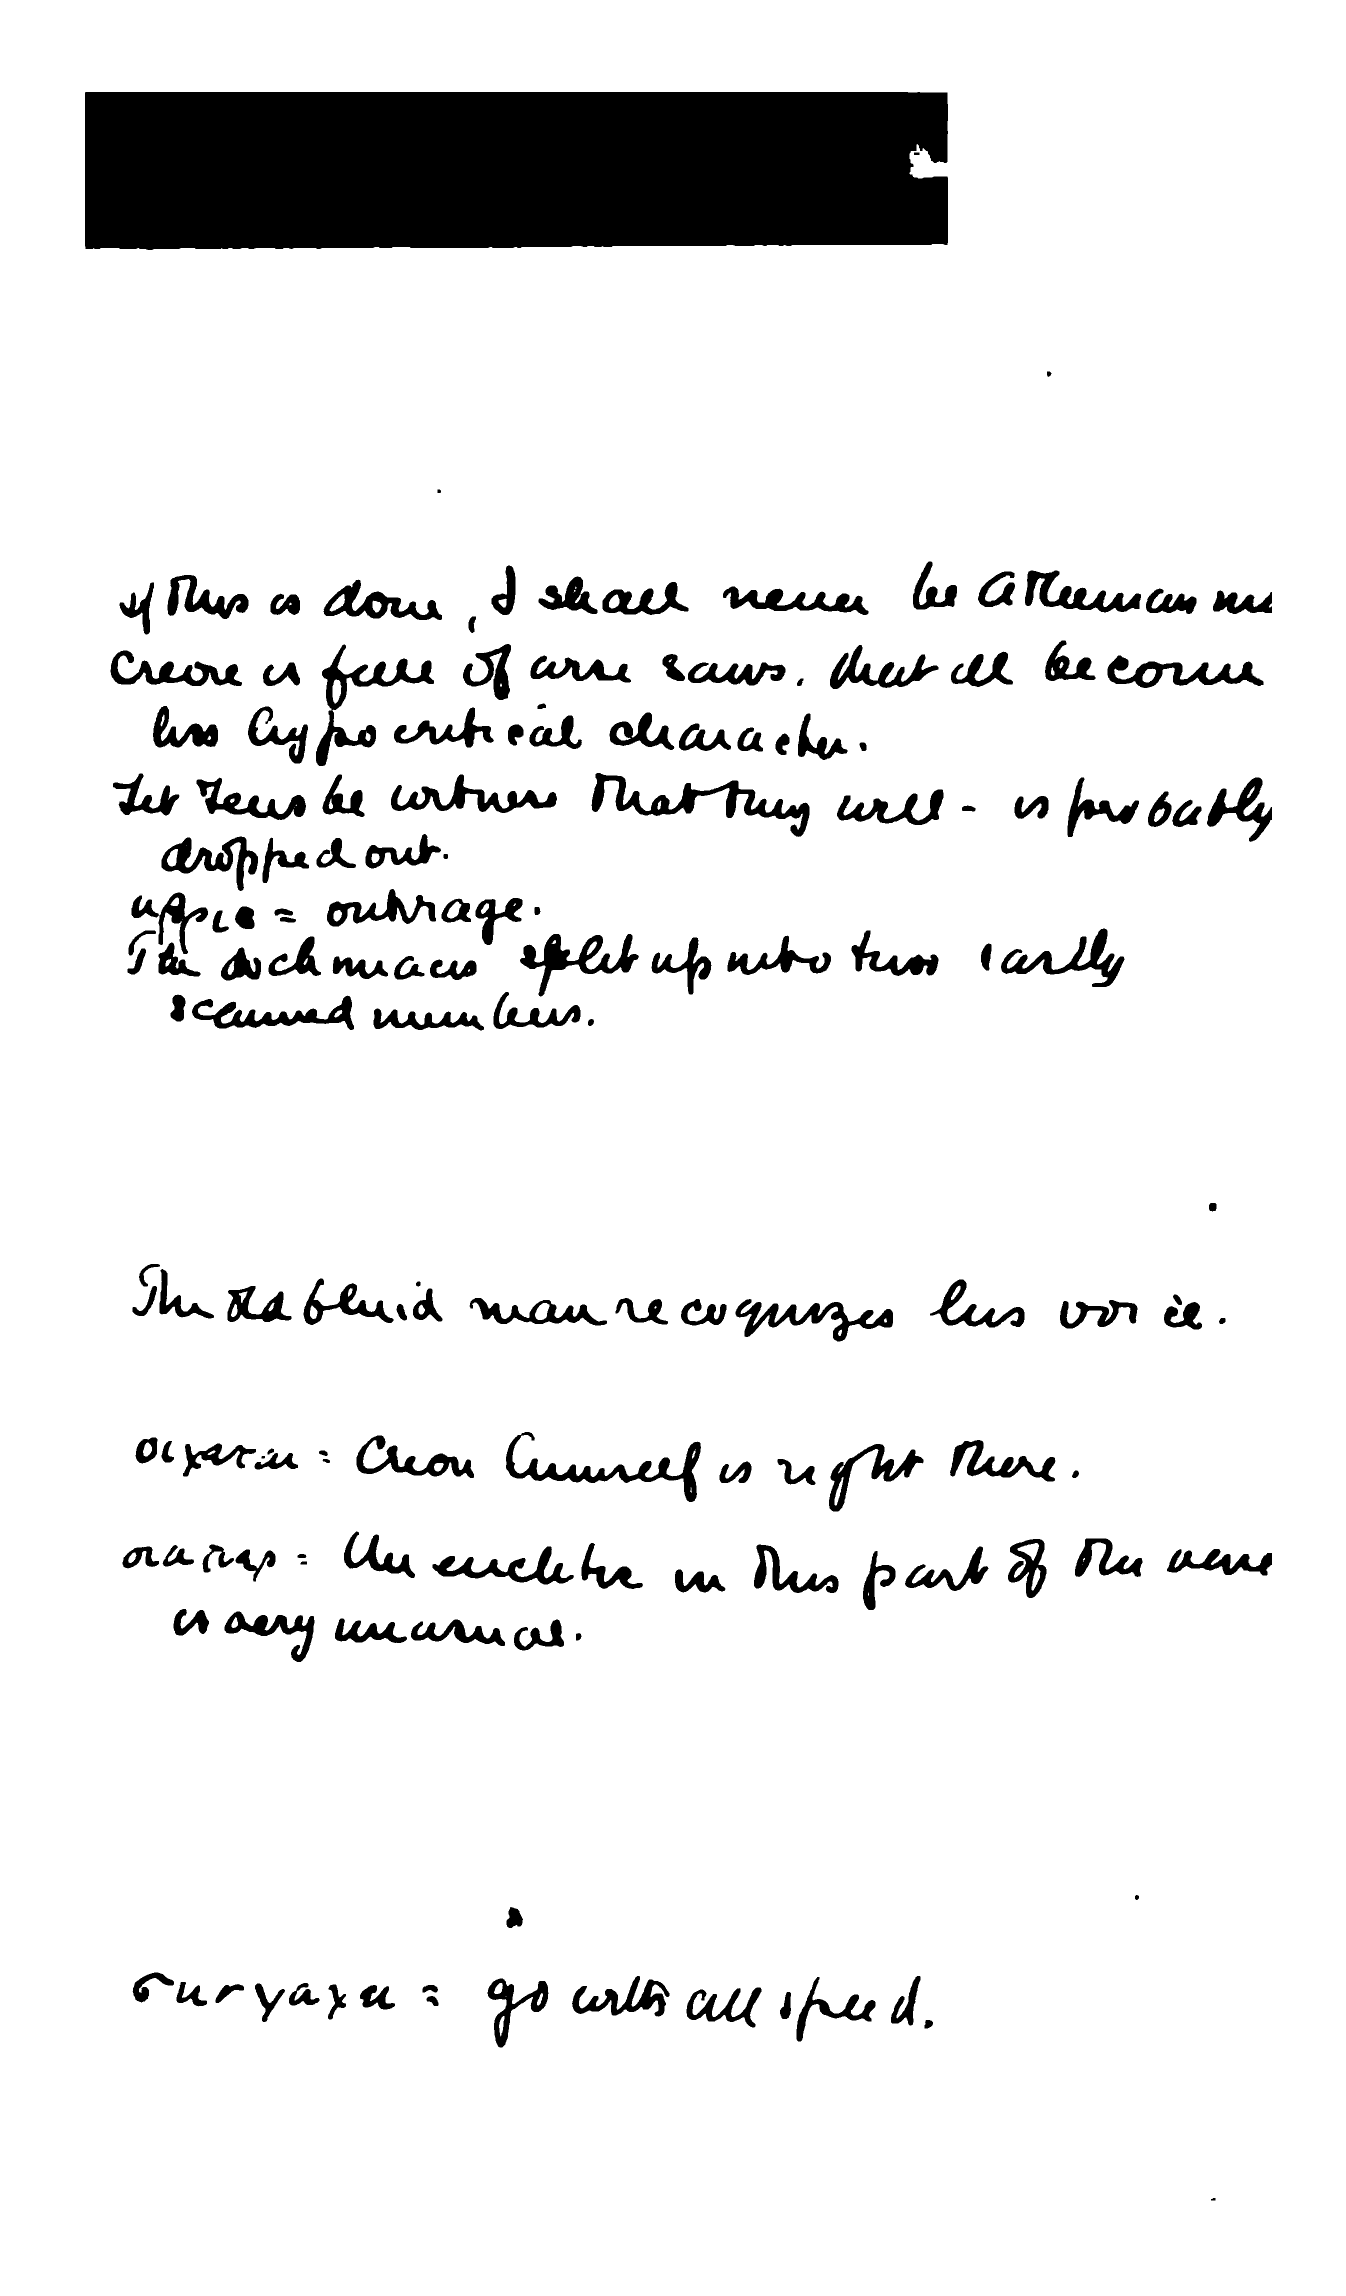 If this is done, I shall never be Athenian
Creon is full of wise saws. that ill become
his hypocritical character.
Let Zeus be witness that they will - is probably
dropped out.
υβρις = outrage.
The dochmiacs split up into two easily
scanned numbers.
The old blind man recognizes his voice.
οιχεται = Creon himself is right there.
= the enclitic in this part of the verse
is very unusual.
= go with all speed.